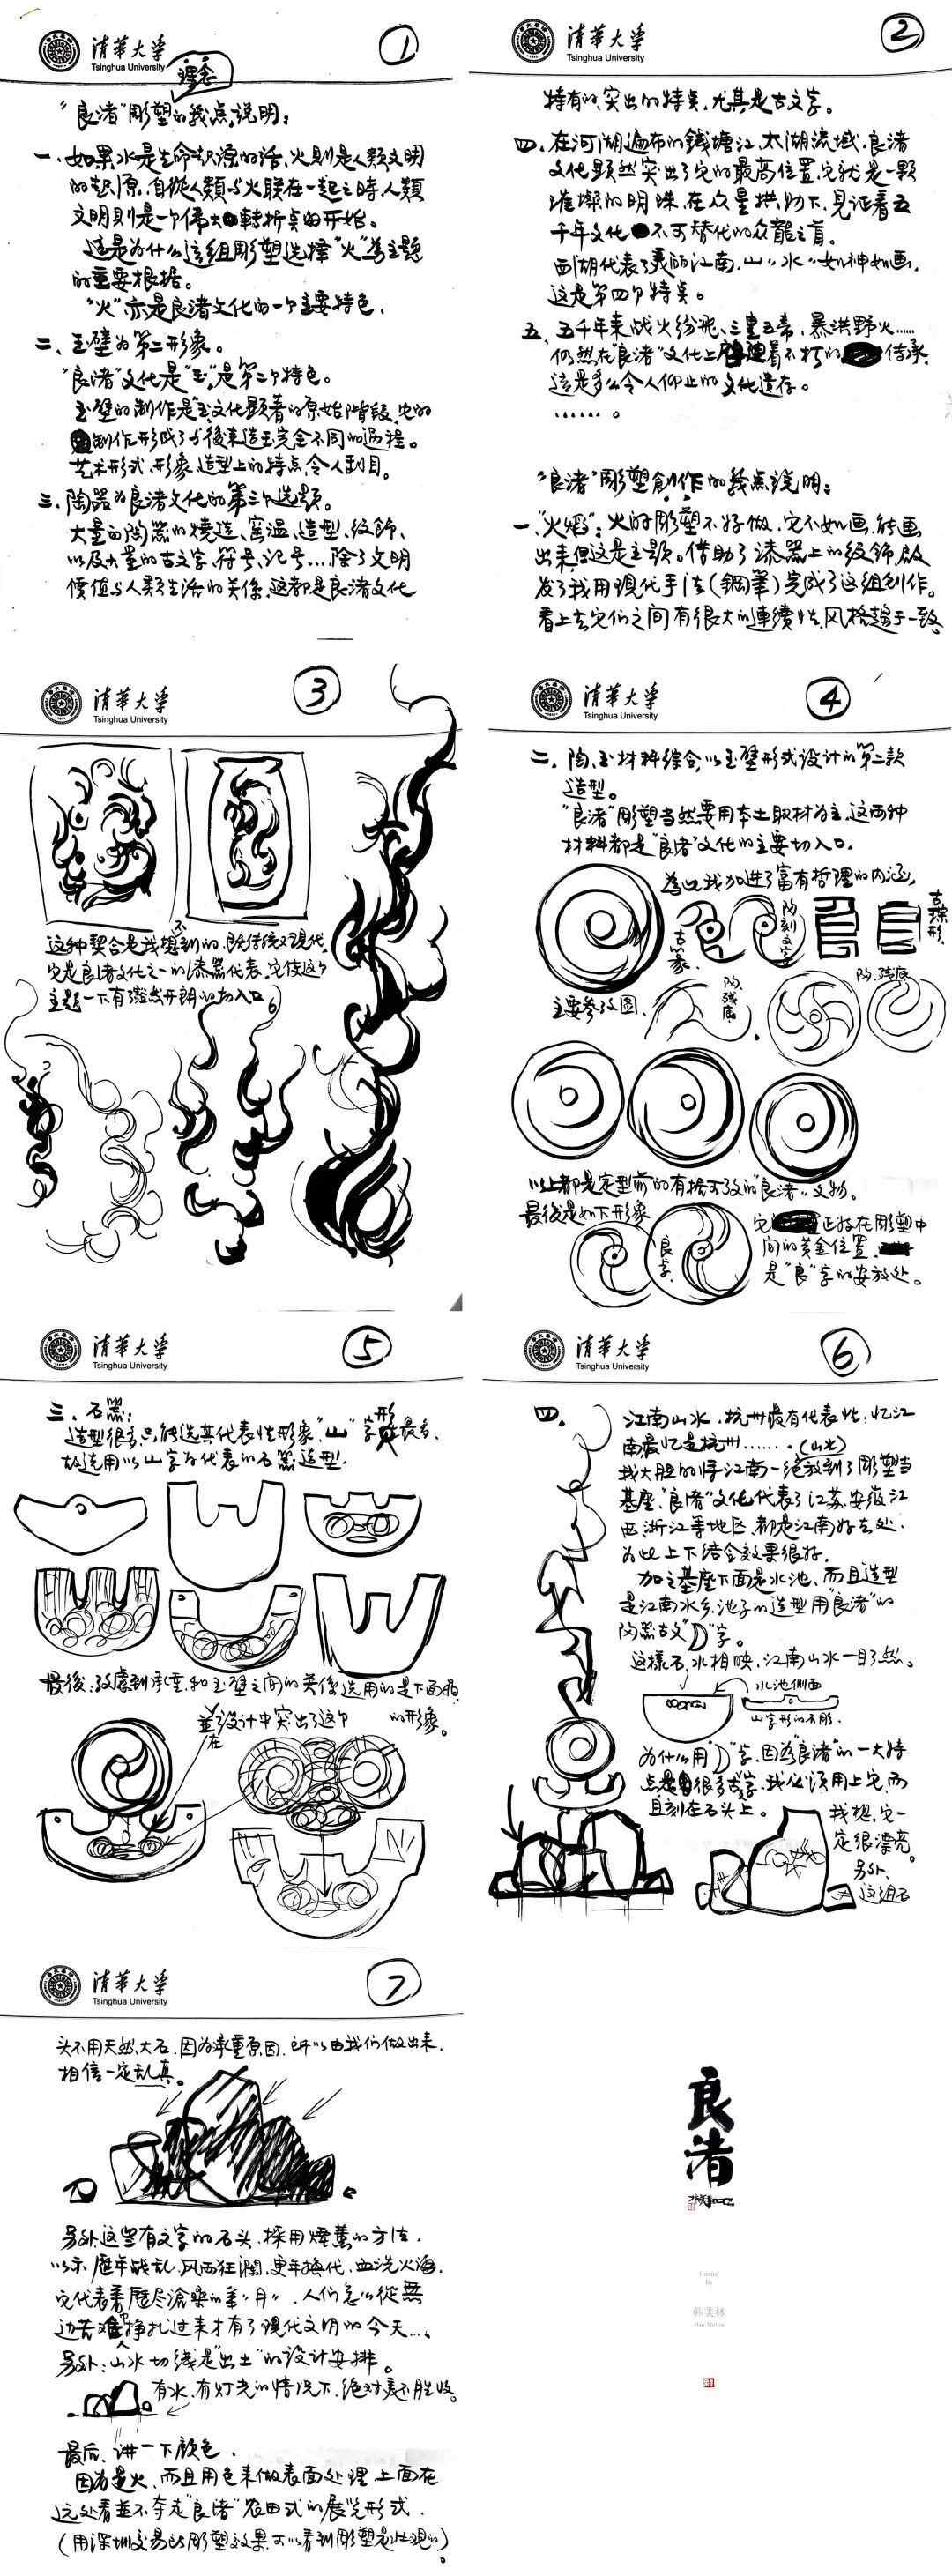 清華大学
Tsinghua University
①
理念
"良渚"彫塑的幾点说明：
一、如果水是生命起源的话，火則是人類文明
的起源，自從人類与火联在一起之時，人類
文明則是一个偉大轉折点的开始。
這是为什么這組彫塑选择"火"為主題
的重要根据。
"火"亦是良渚文化的一个主要特色，
二、玉璧为第二形象。
"良渚"文化是"玉"，是第二个特色。
玉璧的制作是玉文化顯著的原始階段，它的
制作形成了与後来造玉完全不同的過程。
艺术形式、形象、造型上的特点，令人刮目。
三、陶器为良渚文化的第三个选题。
大量的陶器的燒造、窑温、造型、紋飾、
以及大量的古文字、符号、记号…除了文明
價值与人類生活的关係，这都是良渚文化
清華大学
Tsinghua University
②
特有的、突出的特点，尤其是古文字。
四、在河湖遍布的錢塘江、太湖流域，良渚
文化顯然突出了它的最高位置，它就是一颗
璀璨的明珠，在众星拱
千年文化不可替代的众龍之首。
西湖代表了美丽江南，山"水"如神如画，
这是第四个特点。
五、五千年来战火纷飛、三皇五帝、暴洪野火……
仍然在"良渚"文化上着不朽的传承，
這是多么令人仰止的文化遗存。
……。
"良渚"彫塑創作的幾点说明：
一、"火焰"：火的彫塑不好做，它不如画，能画
出来，但这是主題。借助了漆器上的纹饰啟
发了我用現代手法（鋼筆）完成了这组創作。
看上去它们之间有很大的連續性，风格趋于一致，
清華大学
Tsinghua University
③
这种契合是我想不到的，既传统又現代，
它是良渚文化之一的漆器代表，它使这个
主题一下有了豁然开朗的切入口。
清華大学
Tsinghua University
④
二、陶、玉材料综合，以玉璧形式设计的第二款
造型。
"良渚"彫塑当然要用本土取材为主，这两种
材料都是"良渚"文化的主要切入口。
為此我加进了富有哲理的内涵，
古篆
陶刻文字
古琮形
主要参考图。
陶残底
陶.残底
以上都是定型前的有据可考的"良渚"文物。
最後是如下形象
良字
它正好在彫塑中
间的黄金位置，
是"良"字的安放处。
清華大学
Tsinghua University
⑤
三、石器：
造型很多，只能选其代表性形象，"山"字形最多，
故选用以山字为代表的石器造型。
最後，考慮到承重，和玉璧之间的关係选用的是下面
的形象。
並在设计中突出了这个
清華大学
Tsinghua University
⑥
四、
江南山水，杭州最有代表性：忆江
南最忆是杭州……。（山水）
我大胆的将江南一绝放到了彫塑当
基座，"良渚"文化代表了江苏、安徽、江
西、浙江等地区，都是江南好去处，
为此上下结合效果很好。
加之基座下面是水池，而且造型
是江南水乡，池子的造型用"良渚"的
陶器古文"D"字。
这樣石，水相映，江南山水一目了然。
水池側面
山字形的石彫.
为什么用"D"字，因為"良渚"的一大特
点是很多古字，我必须用上它，而
且刻在石头上。
我想，它一
定很漂亮。
另外，
这组石
清華大学
Tsinghua University
⑦
头不用天然大石，因为承重原因，所以由我们做出来，
相信一定乱真。
另外这些有文字的石头，採用煙薰的方法，
以示歷年战乱，风雨狂瀾，更年换代，血洗火海，
它代表着歷尽滄桑的年"月"，人们怎么從無
边苦难中挣扎过来才有了現代文明的今天…。
另外：山水切线是"出土"的设计安排。
有水，有灯光的情况下，绝对美不胜收。
最后，讲一下颜色，
因为是火，而且用色来做表面处理，上面在
远处看並不夺走"良渚"农田式的展览形式，
（用深圳交易所彫塑效果可以看到彫塑是壮观的）。
良渚
韩美林
Han Meilin